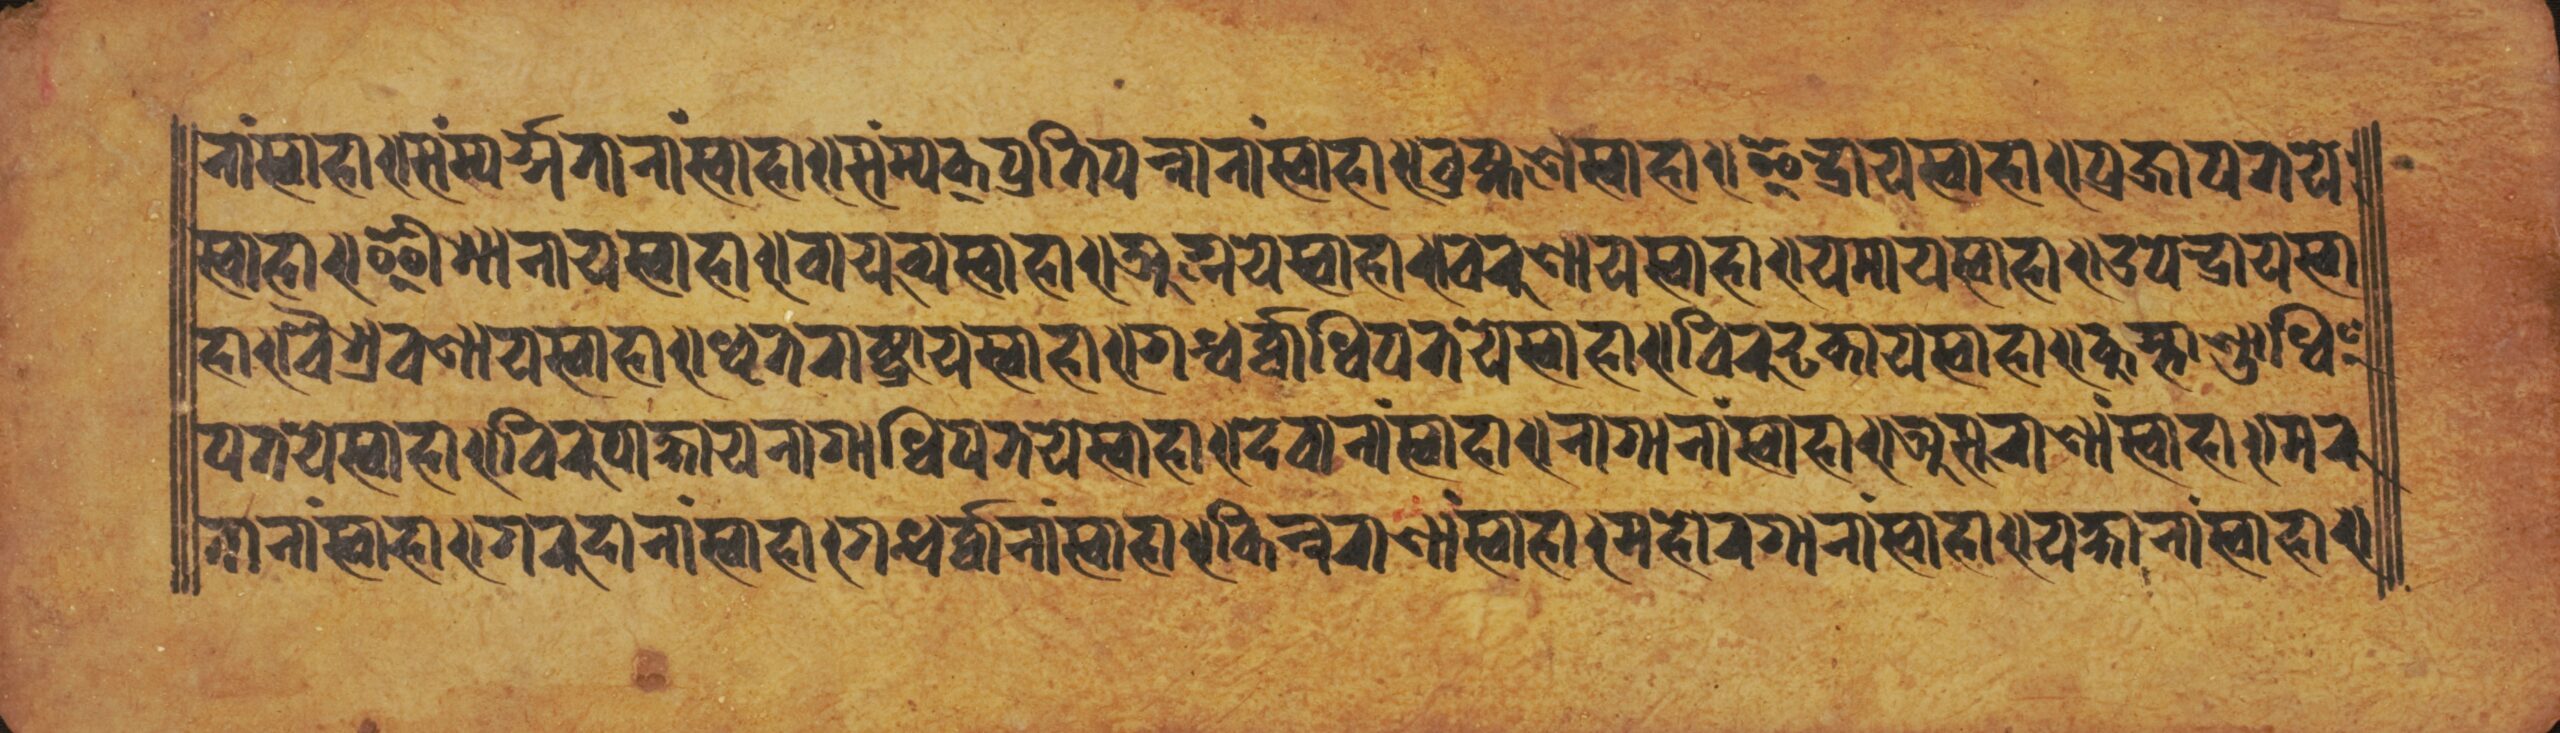 नांस्वाहा॥संम्यर्ग्गतानांस्वाहा॥संम्यक्प्रतिपन्नानांस्वाहा॥ब्रह्मणेस्वाहा॥इन्द्रायस्वाहा॥प्रजापतये
स्वाहा॥ईशानायस्वाहा॥वायुव्यस्वाहा॥अग्नयेस्वाहा॥वरुणायस्वाहा॥यमायस्वाहा॥उपेन्द्रायस्वा
हा॥वैश्रवणायस्वाहा॥धृतराष्ट्रायस्वाहा॥गन्धर्व्वाधिपतयेस्वाहा॥विरुढकायस्वाहा॥कुम्भाण्डाधि
पतयेस्वाहा॥विरुपाक्षायनागाधिपतयेस्वाहा॥देवानांस्वाहा॥नागानांस्वाहा॥असुराणांस्वाहा॥मरु
तानांस्वाहा॥गरुदानांस्वाहा॥गन्धर्व्वानांस्वाहा॥किन्नराणांस्वाहा॥महोरगानांस्वाहा॥यक्षानांस्वाहा॥